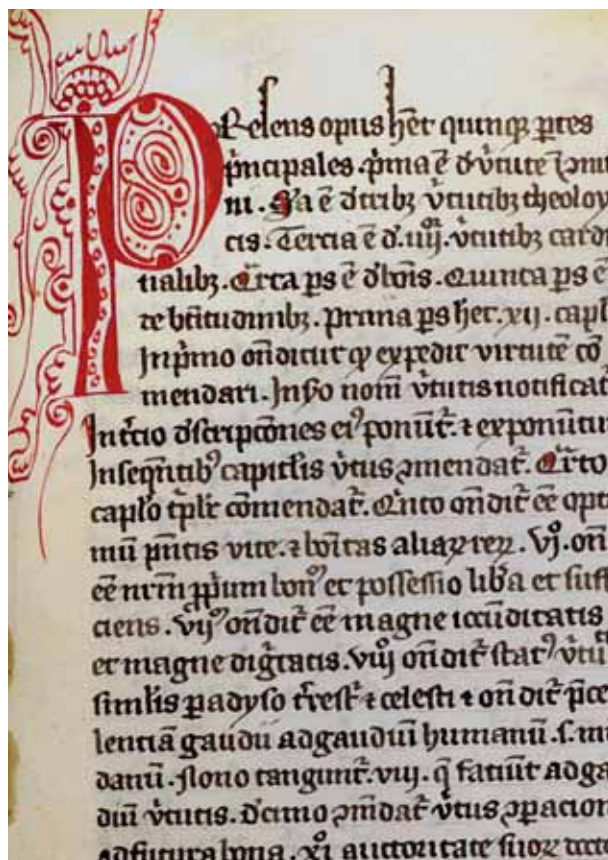 Presens opus hȝ̄t quinqȝ ꝑtes
pͥncipales. pͥma ē d̕ v̕tute ī ꝯmu
ni. S̕a ē d̕ trib⁊ v̕tutib⁊ theoloy
cis. Tercia ē d̕. iiij. v̕tutib⁊ cardi
nalib⁊. Qͣrta ꝑs ē d̕ bōis. Quinta ꝑs ē
de btītudinib⁊. prima ꝑs hȝ̄t. xij. capl
In pͥmo on̄ditur ꝙ expedit virtutē cō
mendari. In sº nom̄ v̕tutis notificat̄
In t̄cio d̕scripcōnes ei⁹ ponūt̄. ⁊ exponūtur
In seqn̄tib⁹ capitlis v̕tus ꝯmendat̄. Qͣrto
caplo t̄plīr cōmendat̄. Qͥnto on̄dit̄ eē opti
mū pn̄tis vite. ⁊ bōitas aliaꝝ reꝝ. Vjº. on̄
eē nr̄m ꝓpͥum bon⁹ et possessio lib̕a et suffi
ciens. Vijº on̄dit̄ eē magne iocūditatis
et magne dig̅tatis. viijº on̄dit̄ stat⁹ v̕tū
similis paradyso t̄rest̄ ⁊ celesti ⁊ on̄dit̄ p̄ce
lentiā gaudii ad gaudiū humanū. s. mū
danū. Nono tangunt̄. viij. q̄ faciūt ad ga
diū v̕tutis. d̕cimo ꝯmdat̄ v̕tus ꝯꝑacion
ad futura bona. xjº auctoritate suoꝝ doct